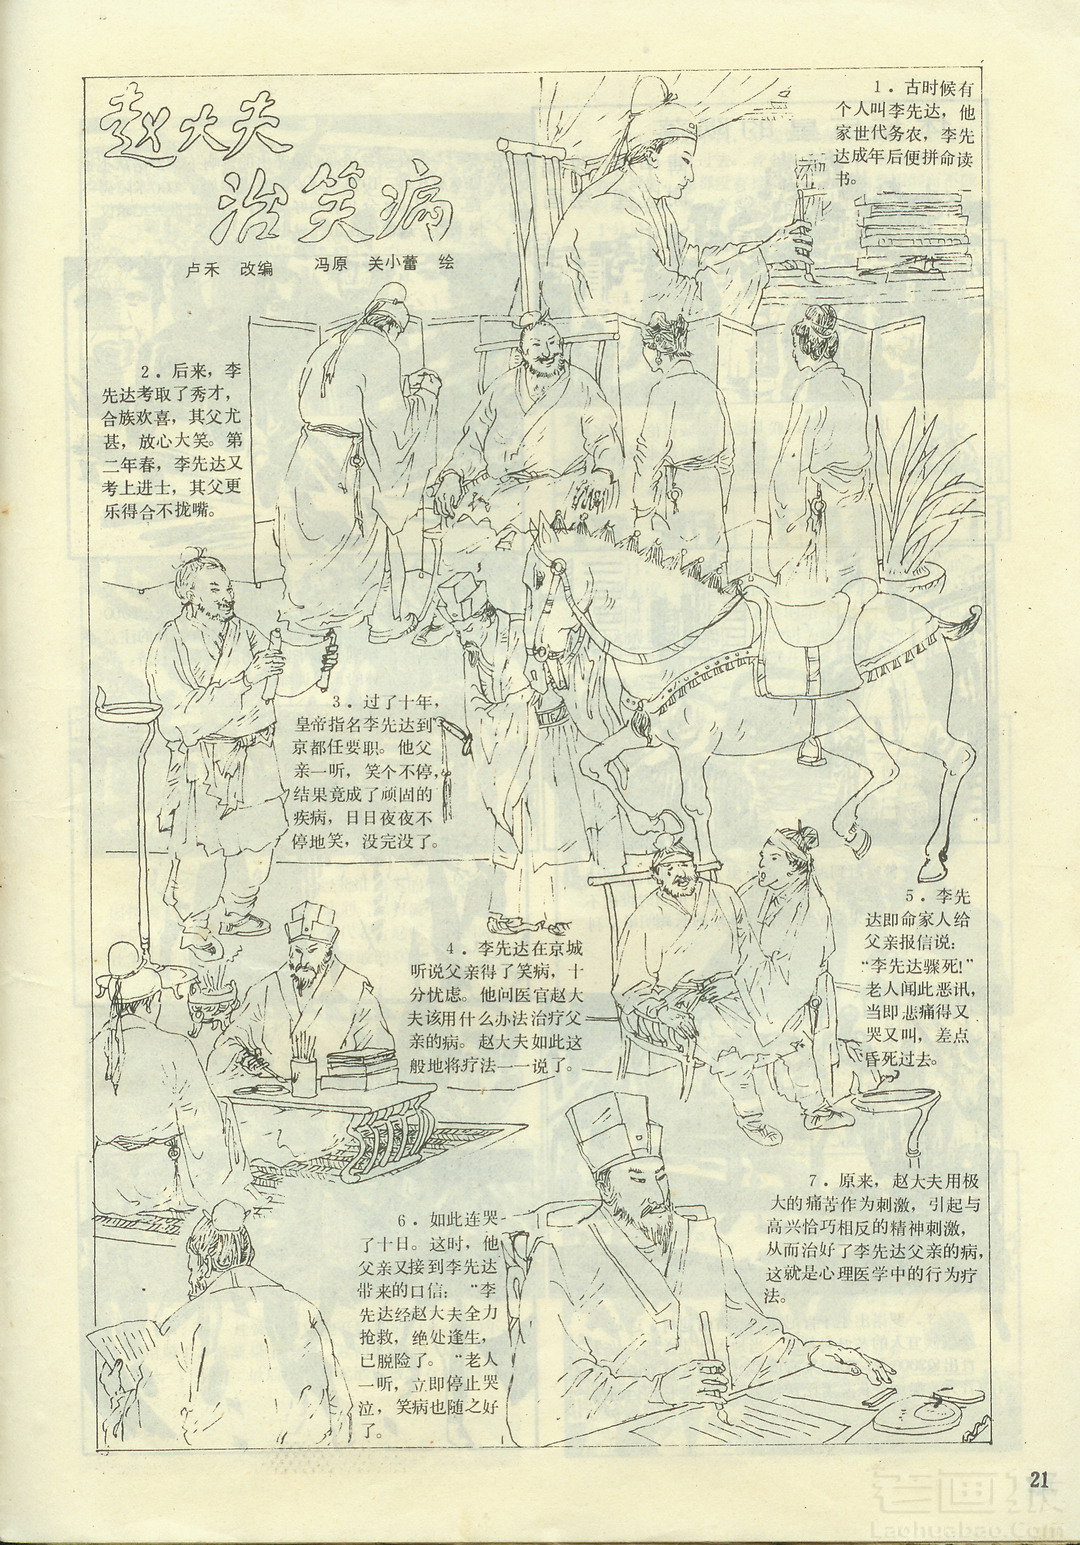 赵大夫
治笑病
卢禾 改编 冯原 关小蕾 绘
1．古时候有
个人叫李先达，他
家世代务农，李先
达成年后便拼命读
书。
2．后来，李
先达考取了秀才，
合族欢喜，其父尤
甚，放心大笑。第
二年春，李先达又
考上进士，其父更
乐得合不拢嘴。
3．过了十年，
皇帝指名李先达到
京都任要职。他父
亲一听，笑个不停，
结果竟成了顽固的
疾病，日日夜夜不
停地笑，没完没了。
4．李先达在京城
听说父亲得了笑病，十
分忧虑。他问医官赵大
夫该用什么办法治疗父
亲的病。赵大夫如此这
般地将疗法一一说了。
5．李先
达即命家人给
父亲报信说：
“李先达骤死！”
老人闻此恶讯，
当即悲痛得又
哭又叫，差点
昏死过去。
6．如此连哭
了十日。这时，他
父亲又接到李先达
带来的口信：“李
先达经赵大夫全力
抢救，绝处逢生，
已脱险了。“老人
一听，立即停止哭
泣，笑病也随之好
了。
7．原来，赵大夫用极
大的痛苦作为刺激，引起与
高兴恰巧相反的精神刺激，
从而治好了李先达父亲的病，
这就是心理医学中的行为疗
法。
21
老画报
Laohuabao.Com